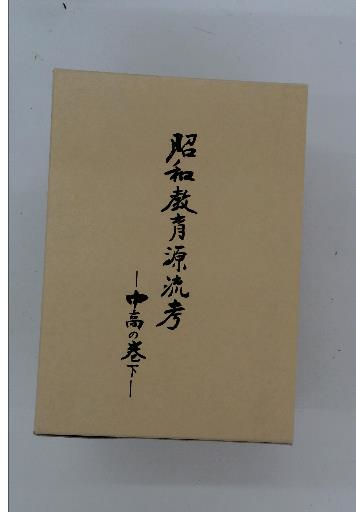 昭和教育源流考
―中高の巻下―